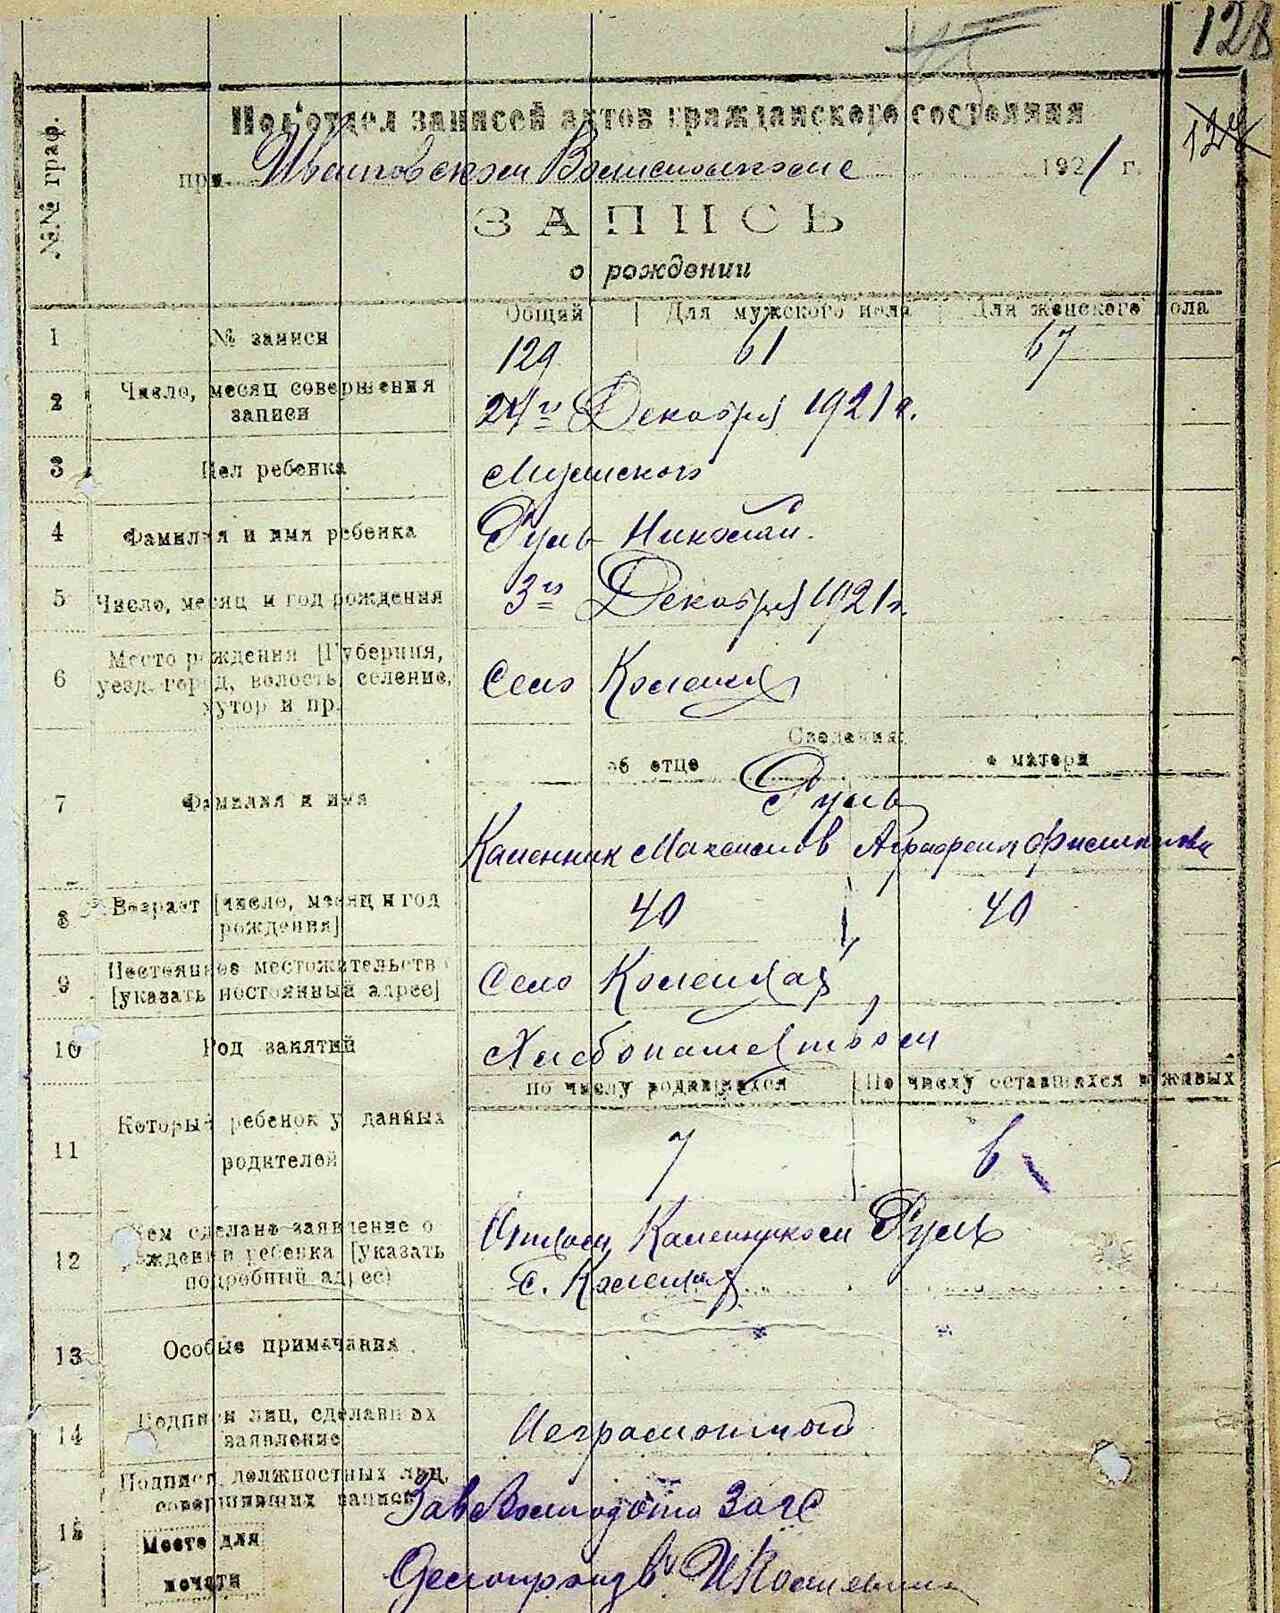 128
124
№№ граф.
Подотдел записей актов гражданского состояния
при Ивановском Волисполкоме 1921 г.
ЗАПИСЬ
о рождении
Общий | Для мужского пола | Для женского пола
1 № записи 129 61 67
2 Число, месяц совершения записи 24го Декабря 1921 г.
3 Пол ребенка Мужского
4 Фамилия и имя ребенка Руль Николай.
5 Число, месяц и год рождения 3го Декабря 1921 г.
6 Место рождения [Губерния, уезд, город, волость, селение, хутор и пр. Село
Сведения:
об отце о матери
7 Фамилия и имя Руль
Каленник Максимов Агрофена
8 Возраст [число, месяц и год рождения] 40 40
9 Постоянное местожительство [указать постоянный адрес] Село
10 Род занятий Хлебопашеством
по числу родившихся | По числу оставшихся в живых
11 Который ребенок у данных родителей 7 6
12 Кем сделано заявление о рождении ребенка [указать подробный адрес) Отцом Каленником Руль
с.
13 Особые примечания
14 Подписи лиц, сделавших заявление Неграмотный
15 Подписи должностных лиц, совершивших запись Зав. Загс
Место для печати Делопроизв.